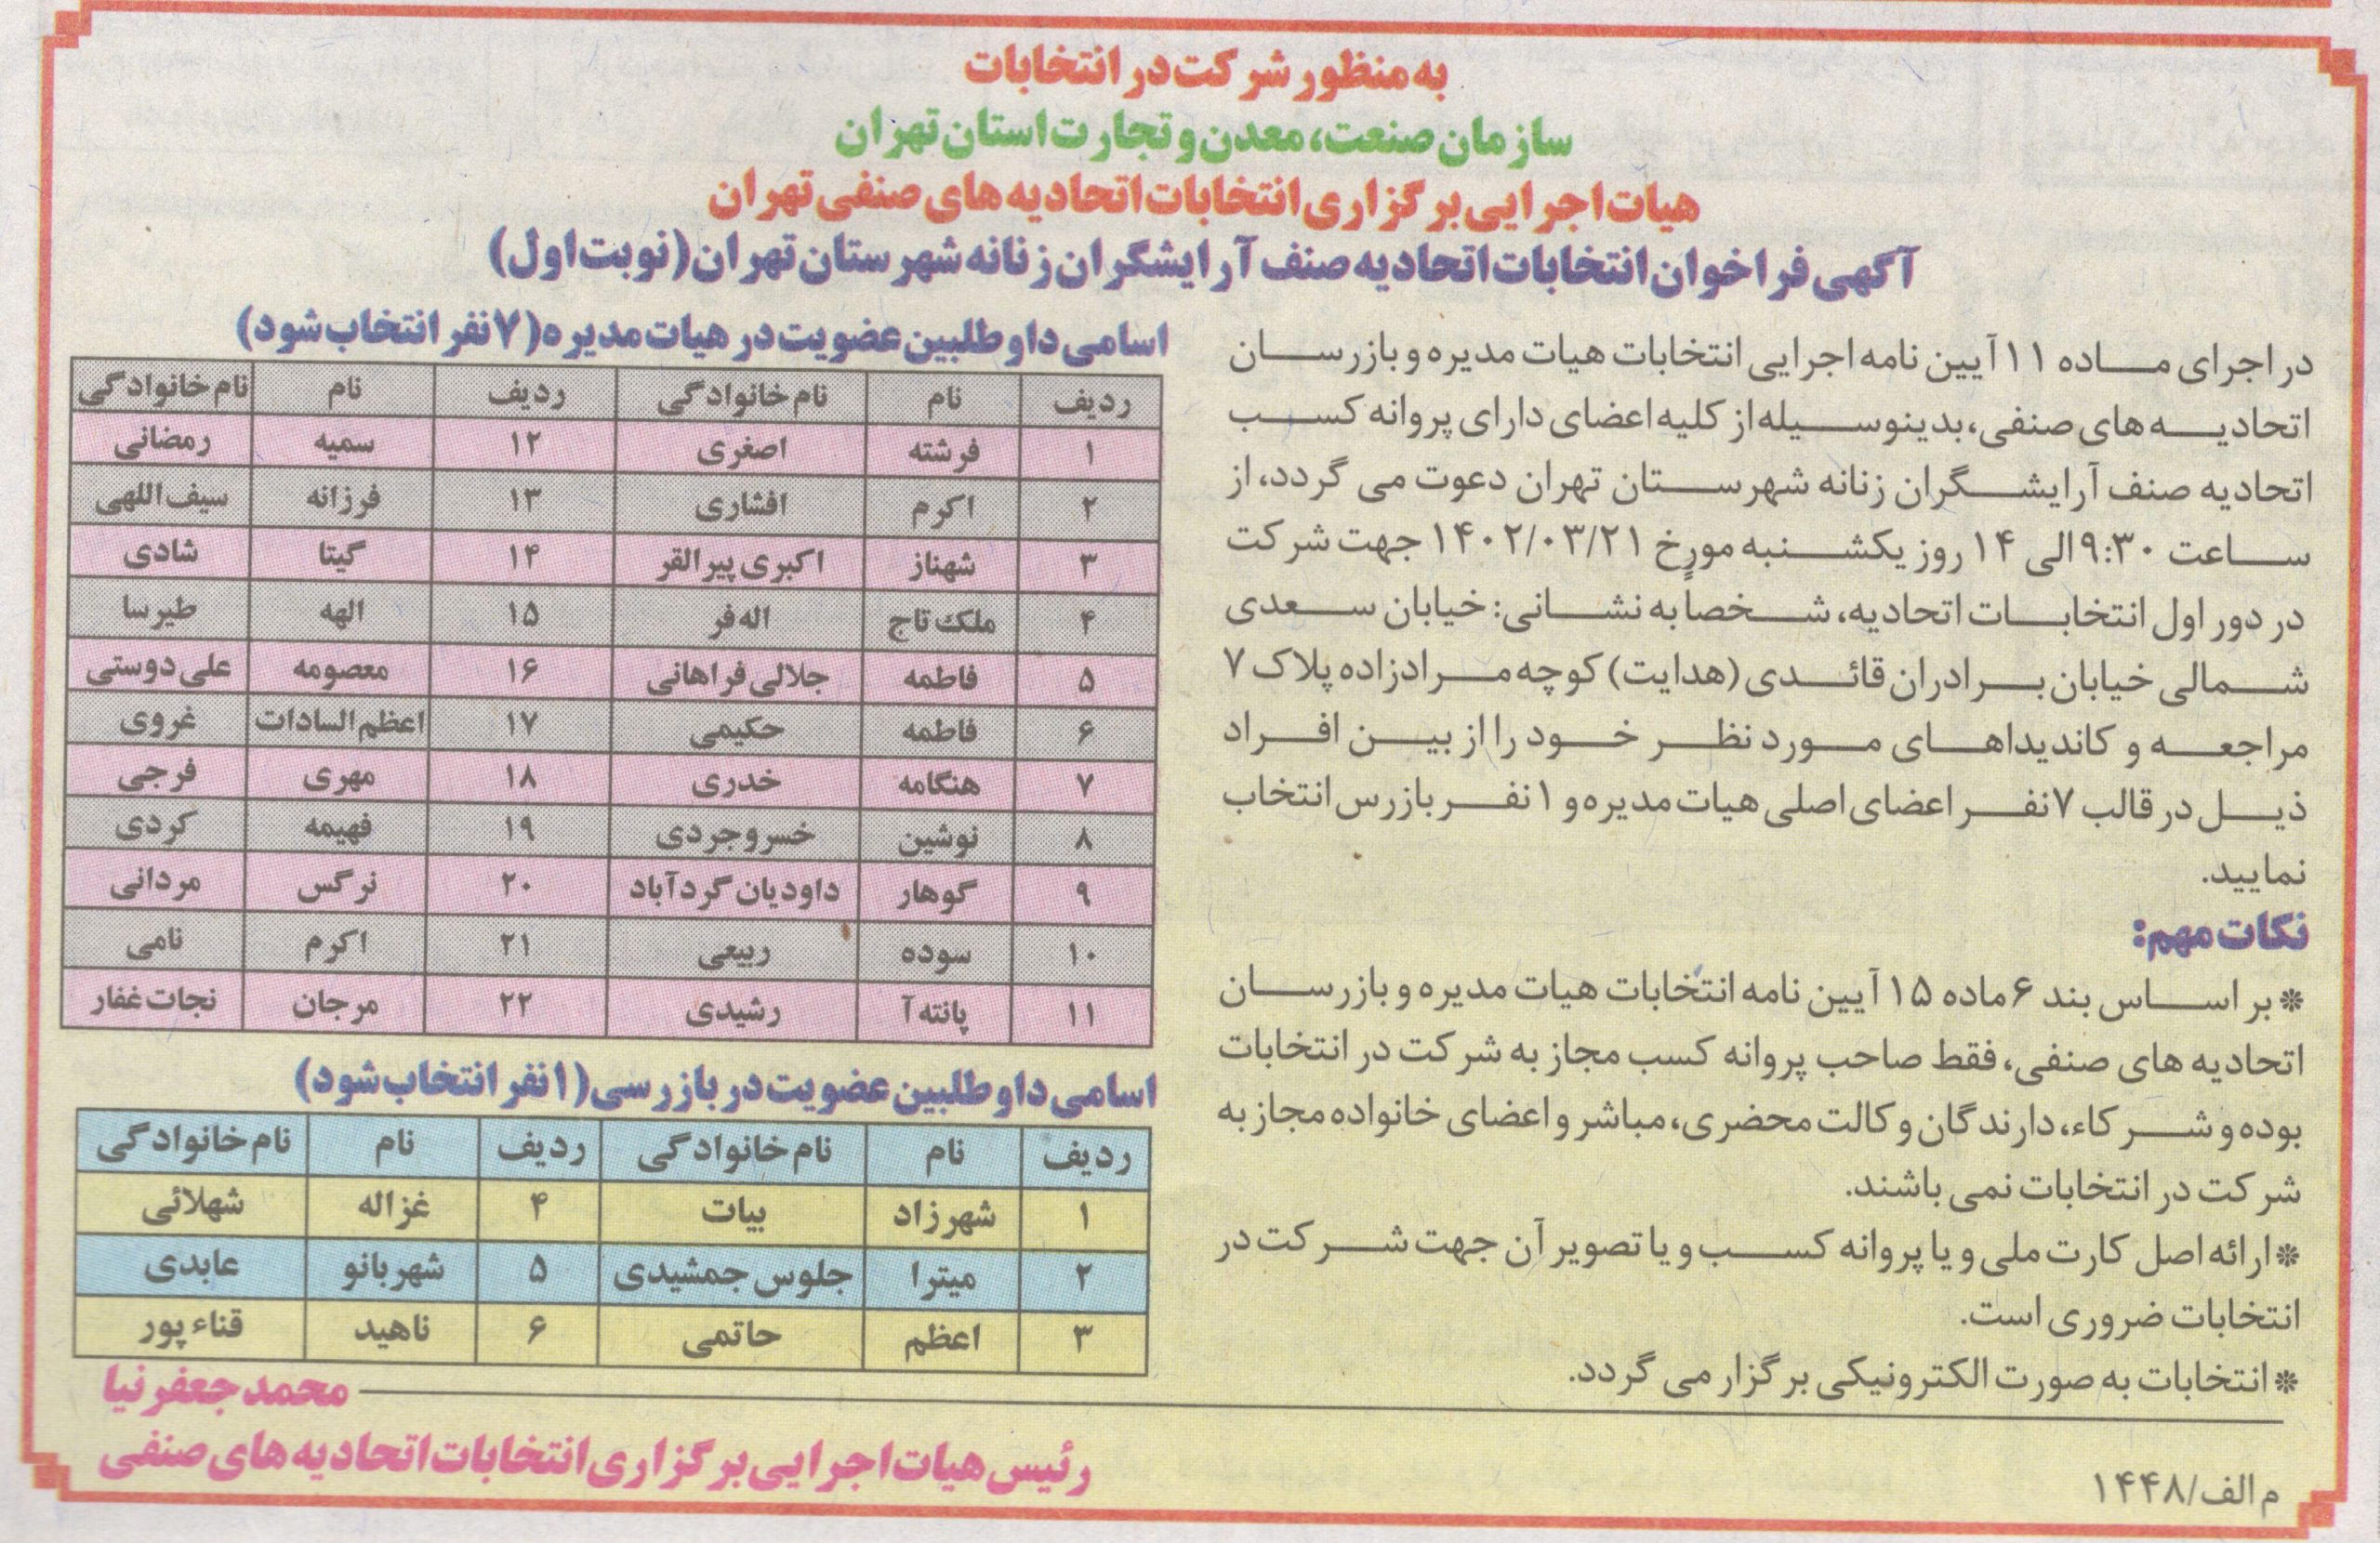 به منظور شرکت در انتخابات
سازمان صنعت، معدن و تجارت استان تهران
هیات اجرایی برگزاری انتخابات اتحادیه های صنفی تهران
آگهی فراخوان انتخابات اتحادیه صنف آرایشگران زنانه شهرستان تهران (نوبت اول)
در اجرای ماده ۱۱ آیین نامه اجرایی انتخابات هیات مدیره و بازرسان
اتحادیه های صنفی، بدینوسیله از کلیه اعضای دارای پروانه کسب
اتحادیه صنف آرایشگران زنانه شهرستان تهران دعوت می گردد، از
ساعت ۹:۳۰ الی ۱۴ روز یکشنبه مورخ ۱۴۰۲/۰۳/۲۱ جهت شرکت
در دور اول انتخابات اتحادیه، شخصاً به نشانی: خیابان سعدی
شمالی خیابان برادران قائدی (هدایت) کوچه مرادزاده پلاک ۷
مراجعه و کاندیداهای مورد نظر خود را از بین افراد
ذیل در قالب ۷ نفر اعضای اصلی هیات مدیره و ۱ نفر بازرس انتخاب
نمایید.
نکات مهم:
* بر اساس بند ۶ ماده ۱۵ آیین نامه انتخابات هیات مدیره و بازرسان
اتحادیه های صنفی، فقط صاحب پروانه کسب مجاز به شرکت در انتخابات
بوده و شرکاء، دارندگان وکالت محضری، مباشر و اعضای خانواده مجاز به
شرکت در انتخابات نمی باشند.
* ارائه اصل کارت ملی و یا پروانه کسب و یا تصویر آن جهت شرکت در
انتخابات ضروری است.
* انتخابات به صورت الکترونیکی برگزار می گردد.
اسامی داوطلبین عضویت در هیات مدیره (۷ نفر انتخاب شود)
ردیف نام نام خانوادگی ردیف نام نام خانوادگی
۱ فرشته اصغری ۱۲ سمیه رمضانی
۲ اکرم افشاری ۱۳ فرزانه سیف اللهی
۳ شهناز اکبری پیرالقر ۱۴ گیتا شادی
۴ ملک تاج اله فر ۱۵ الهه طیرسا
۵ فاطمه جلالی فراهانی ۱۶ معصومه علی دوستی
۶ فاطمه حکیمی ۱۷ اعظم السادات غروی
۷ هنگامه خدری ۱۸ مهری فرجی
۸ نوشین خسروجردی ۱۹ فهیمه کردی
۹ گوهار داودیان گردآباد ۲۰ نرگس مردانی
۱۰ سوده ربیعی ۲۱ اکرم نامی
۱۱ پانته آ رشیدی ۲۲ مرجان نجات غفار
اسامی داوطلبین عضویت در بازرسی (۱ نفر انتخاب شود)
ردیف نام نام خانوادگی ردیف نام نام خانوادگی
۱ شهرزاد بیات ۴ غزاله شهلائی
۲ میترا جلوس جمشیدی ۵ شهربانو عابدی
۳ اعظم حاتمی ۶ ناهید قناء پور
محمد جعفر نیا
رئیس هیات اجرایی برگزاری انتخابات اتحادیه های صنفی
م الف/۱۴۴۸